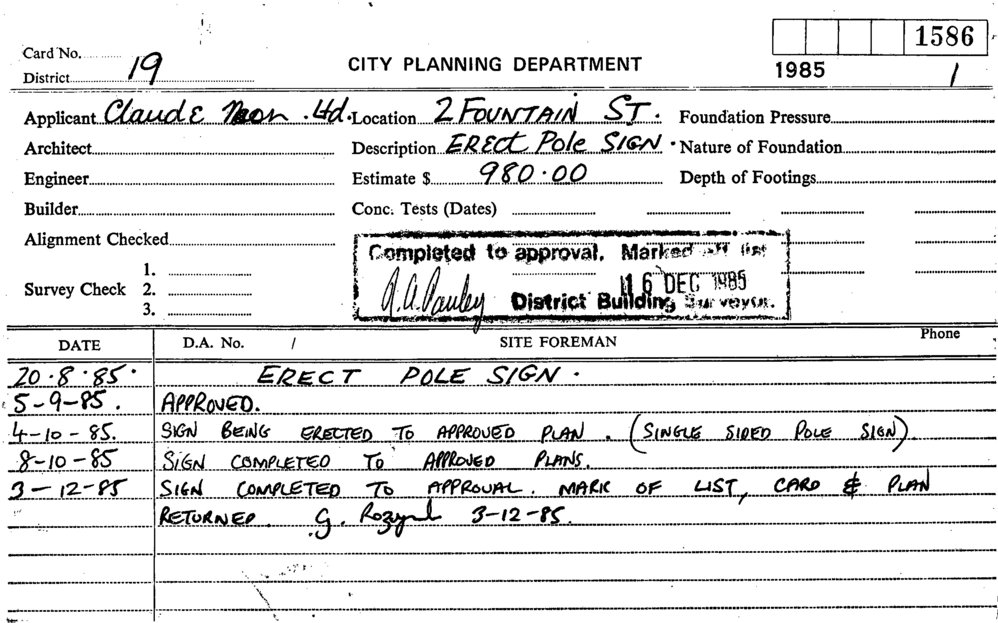 1586
Card No.
District 19
CITY PLANNING DEPARTMENT
1985 1
Applicant Claude Neon Ltd. Location 2 FOUNTAIN ST. Foundation Pressure
Architect Description ERECT Pole SIGN. Nature of Foundation
Engineer Estimate $ 980.00 Depth of Footings
Builder Conc. Tests (Dates)
Alignment Checked
Completed to approval. Marked off list
Survey Check 1. 2. 3.
16 DEC 1985
District Building Surveyor.
DATE D.A. No. / SITE FOREMAN Phone
20.8.85. ERECT POLE SIGN.
5-9-85. APPROVED.
4-10-85. SIGN BEING ERECTED TO APPROVED PLAN. (SINGLE SIDED POLE SIGN)
8-10-85 SIGN COMPLETED TO APPROVED PLANS.
3-12-85 SIGN COMPLETED TO APPROVAL. MARK OF LIST, CARD & PLAN
RETURNED. G. 3-12-85.